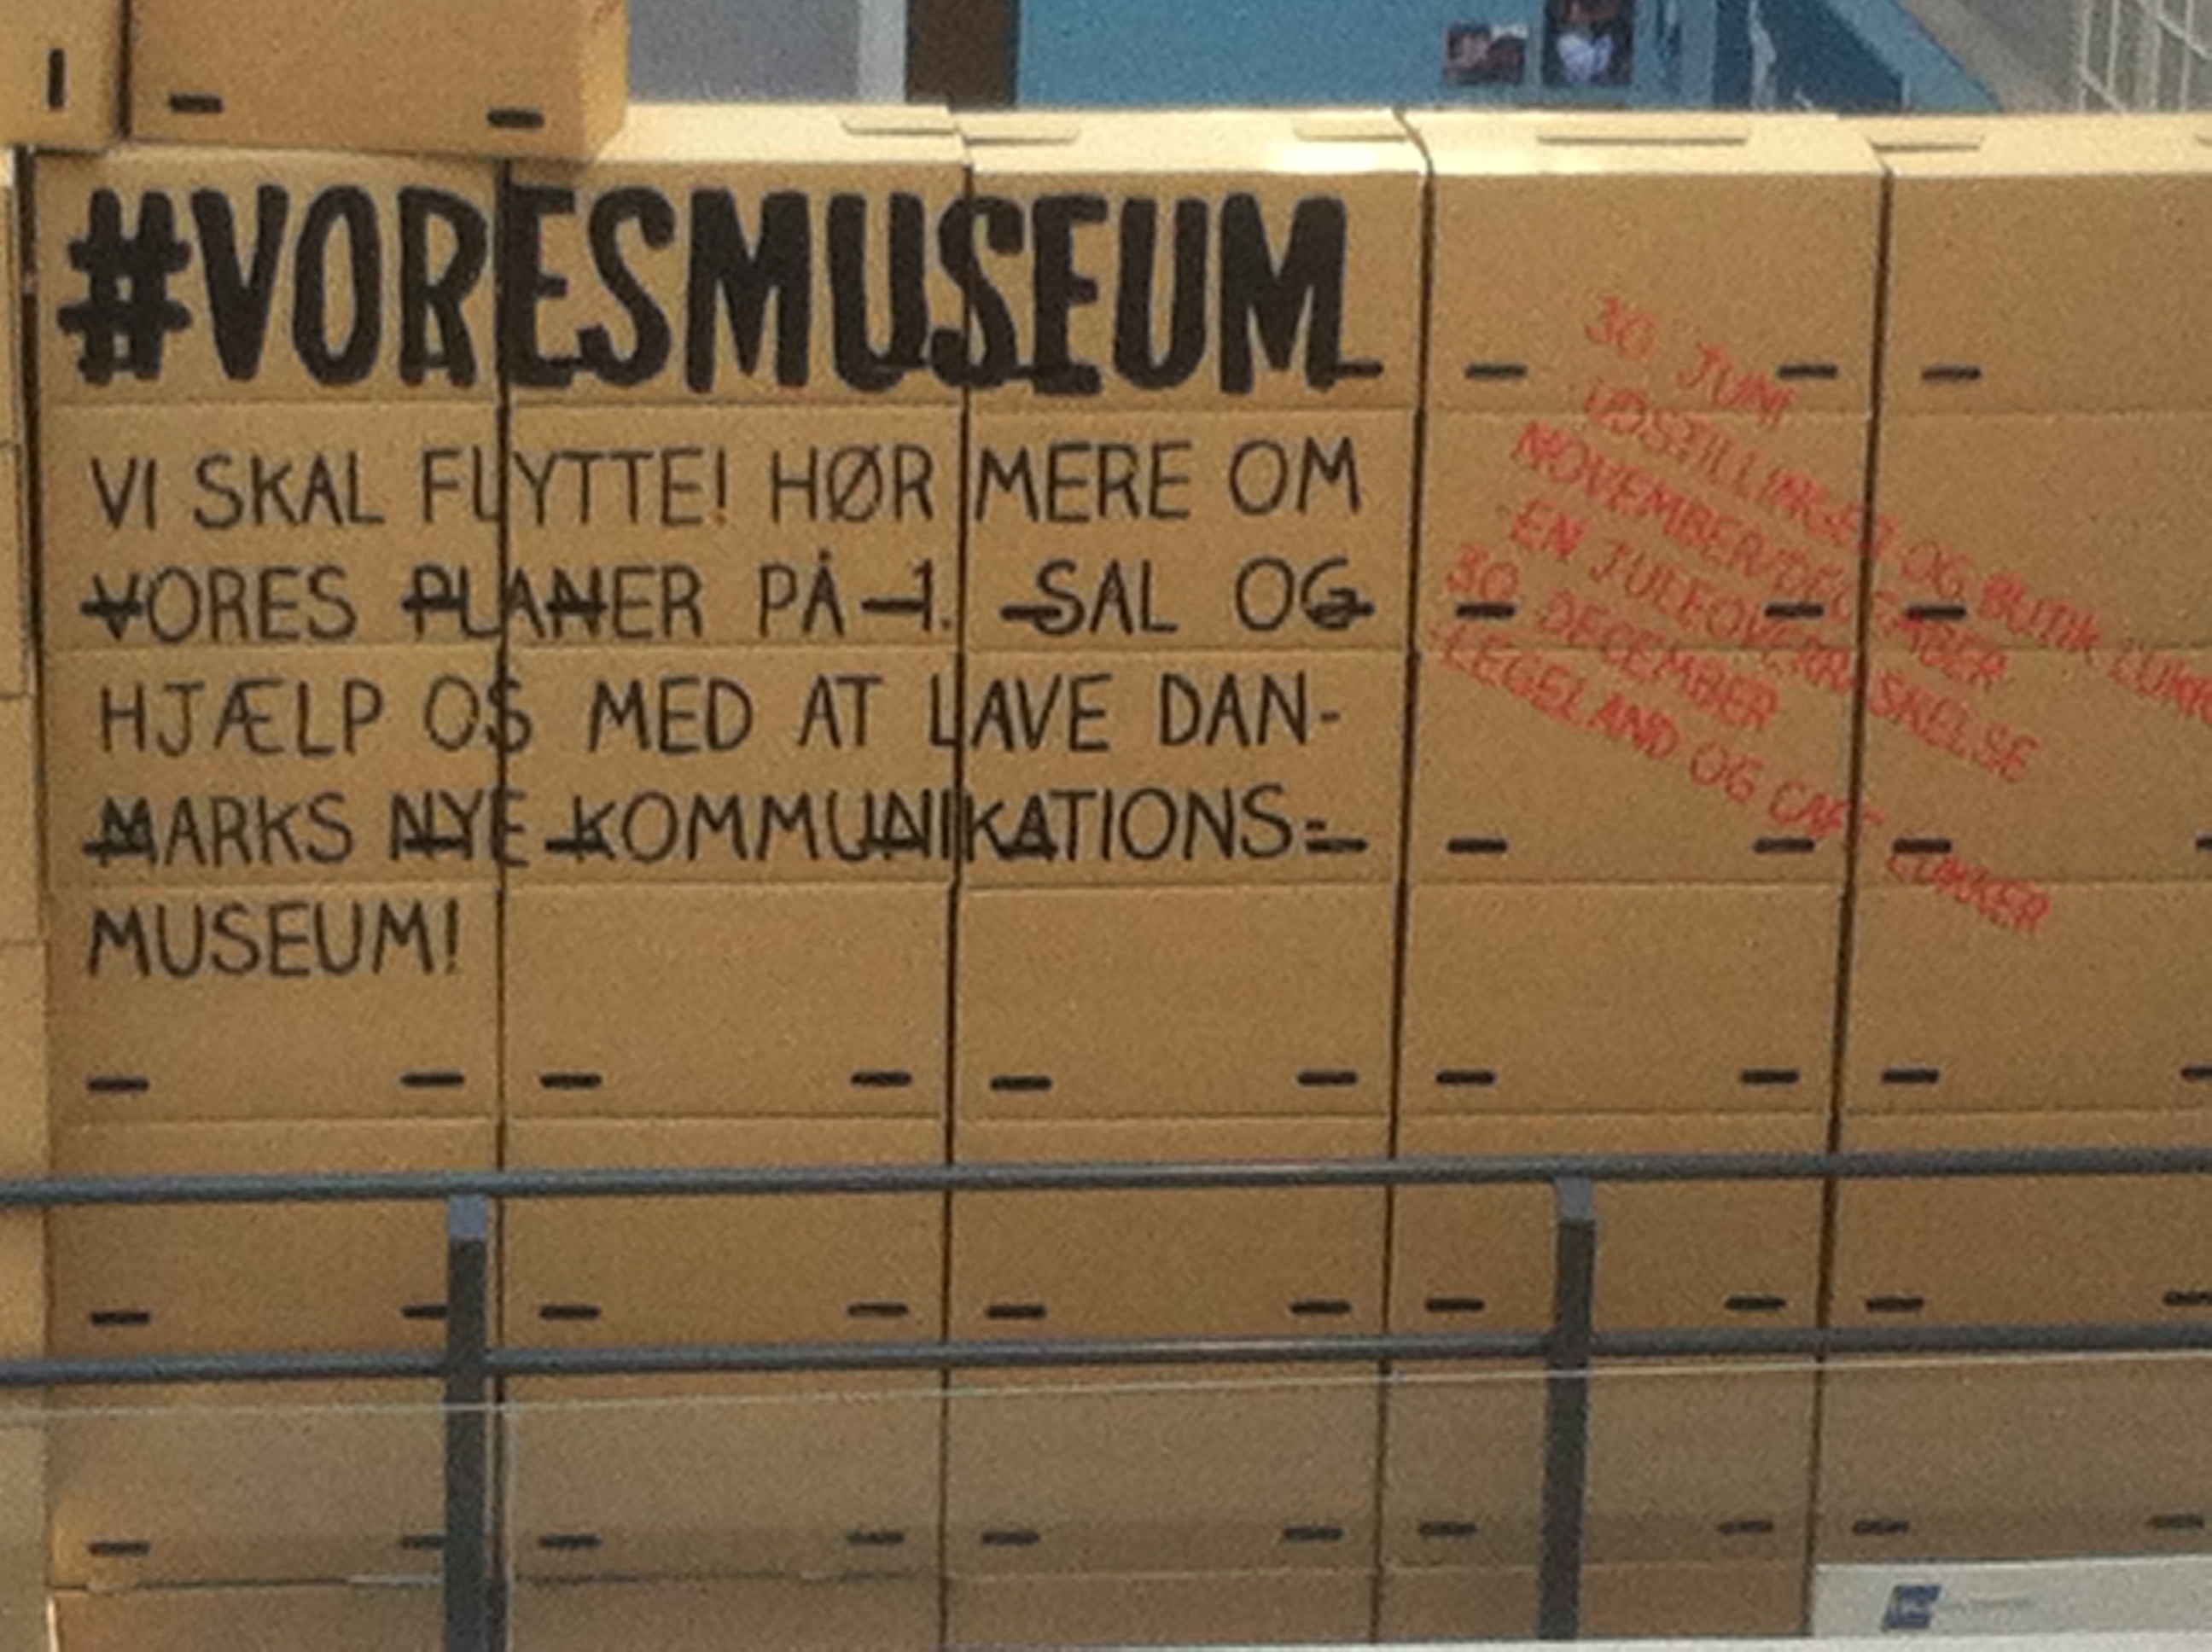 #VORESMUSEUM
VI SKAL FLYTTE! HØR MERE OM
VORES PLANER PÅ 1. SAL OG
HJÆLP OS MED AT LAVE DAN-
MARKS NYE KOMMUNIKATIONS-
MUSEUM!
30 JUNI
UDSTILLINGER OG BUTIK
NOVEMBER/DECEMBER
EN JULEOVERRASKELSE
30 DECEMBER
LEGELAND OG CAFE LUKKER